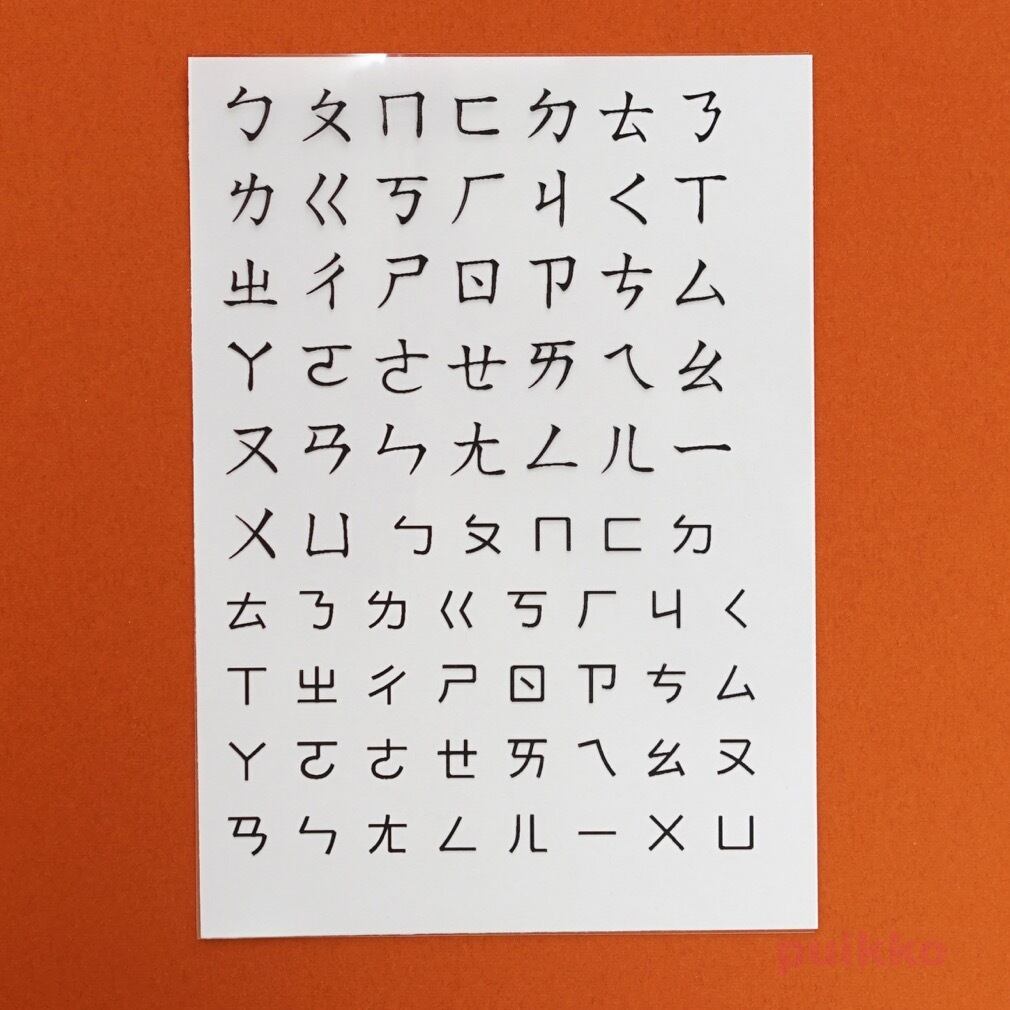 ㄅㄆㄇㄈㄉㄊㄋ
ㄌㄍㄎㄏㄐㄑㄒ
ㄓㄔㄕㄖㄗㄘㄙ
ㄚㄛㄜㄝㄞㄟㄠ
ㄡㄢㄣㄤㄥㄦㄧ
ㄨㄩㄅㄆㄇㄈㄉ
ㄊㄋㄌㄍㄎㄏㄐㄑ
ㄒㄓㄔㄕㄖㄗㄘㄙ
ㄚㄛㄜㄝㄞㄟㄠㄡ
ㄢㄣㄤㄥㄦㄧㄨㄩ
puikko